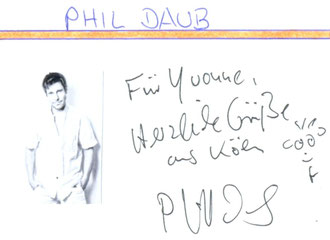 PHIL DAUB
Für Yvonne,
Herzliche Grüße
aus Köln